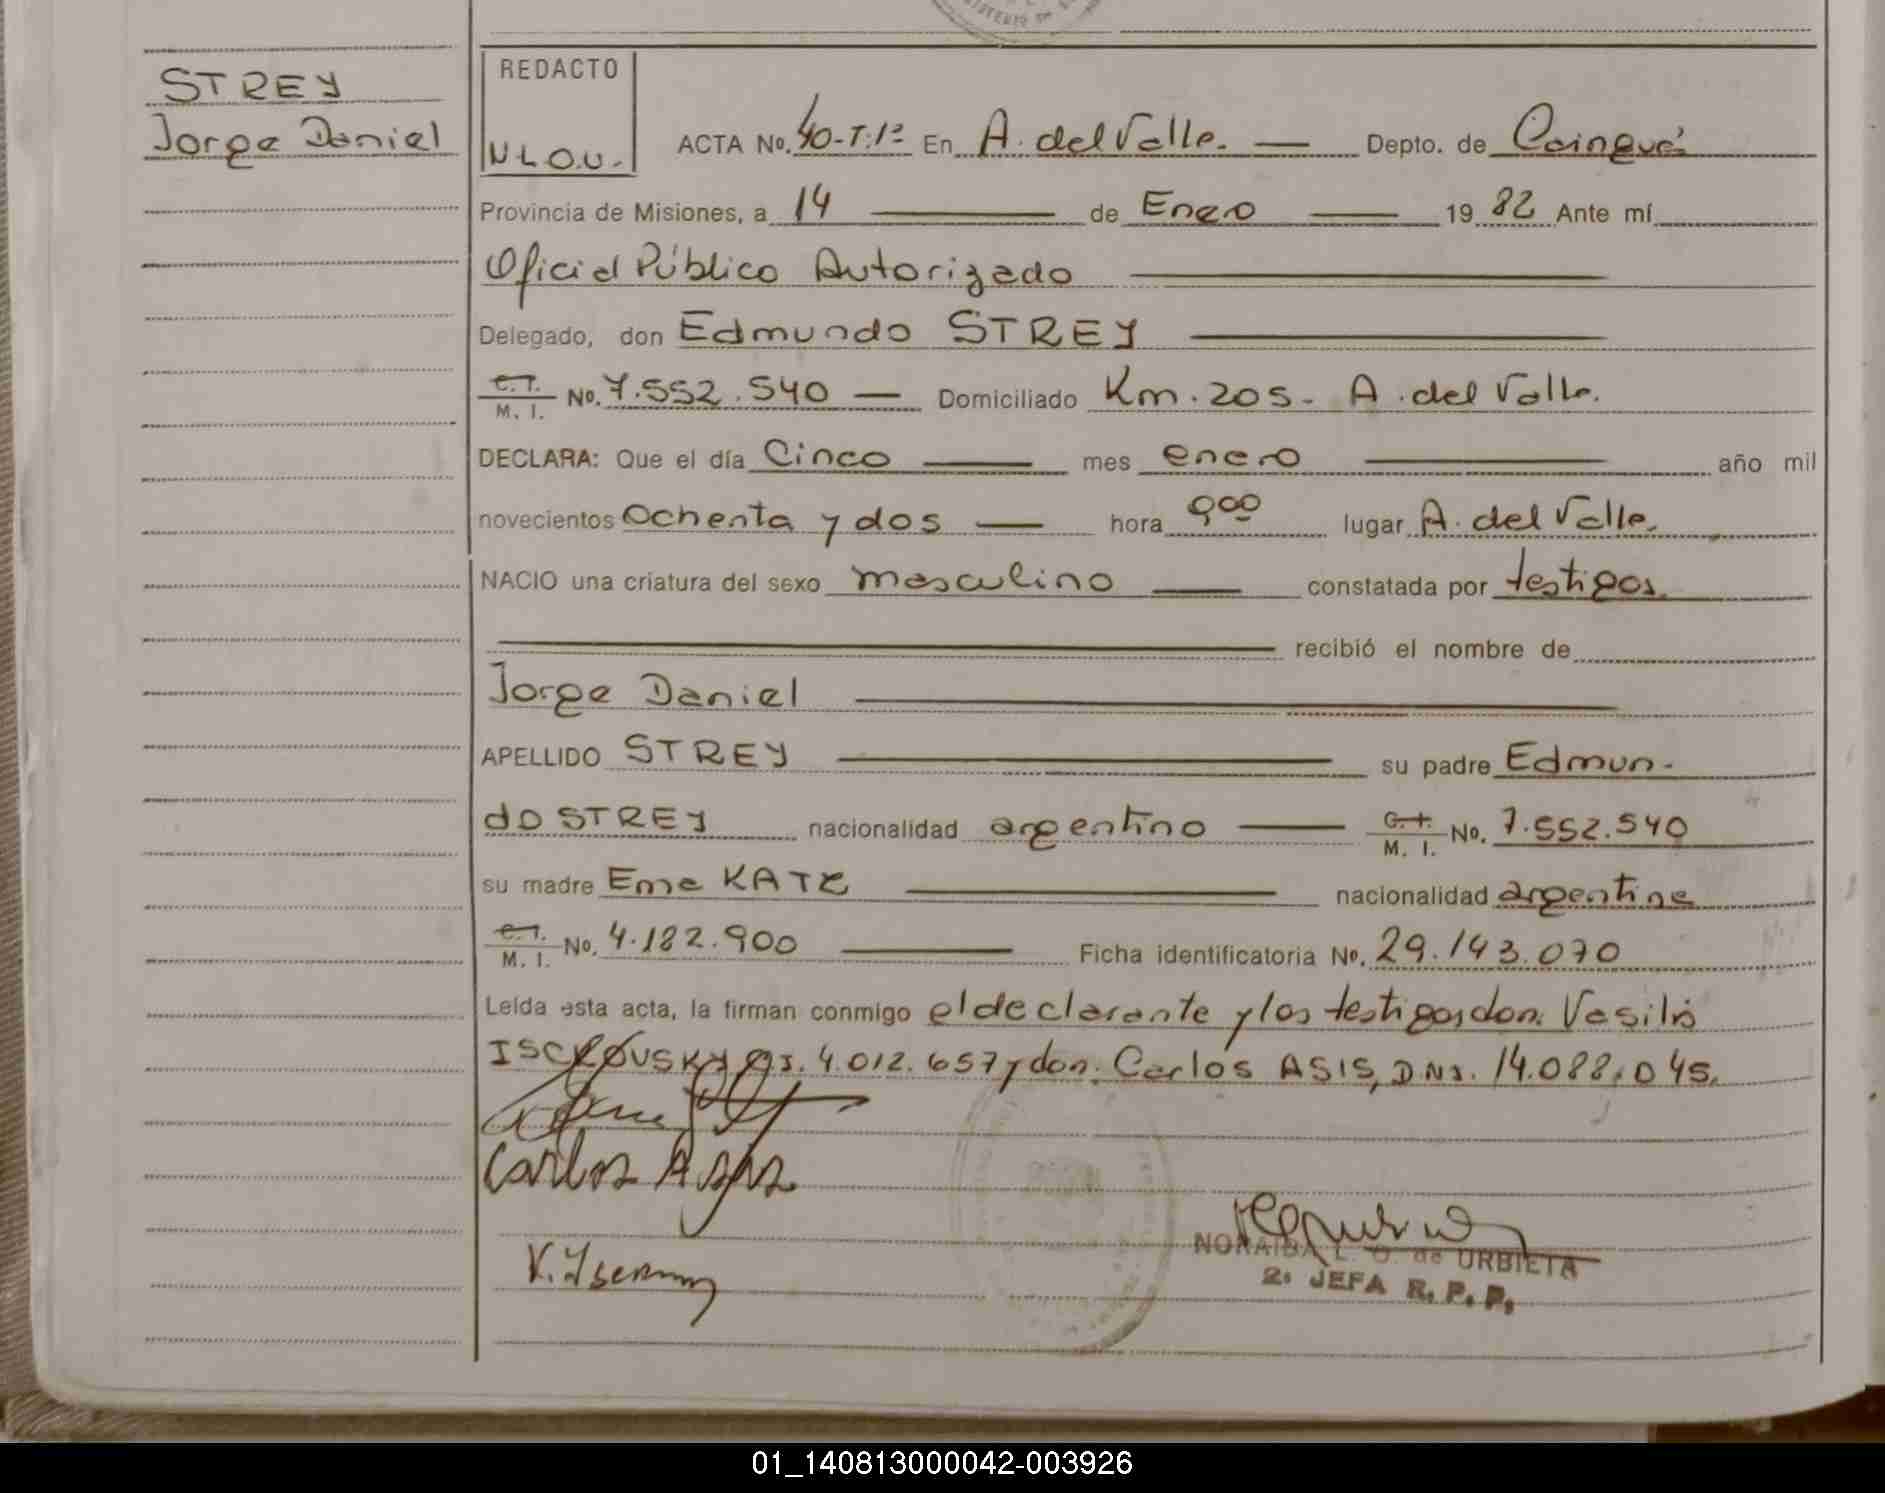 STREY
Jorge Daniel
REDACTO
N.L.O.U.-
ACTA No. 40-T.1º En A. del Valle. — Depto. de Cainguá
Provincia de Misiones, a 14 — de Enero — 19 82 Ante mí
Oficial Público Autorizado
Delegado, don Edmundo STREY
C.I. M. I. No. 7.552.540 — Domiciliado Km. 205 - A. del Valle.
DECLARA: Que el día Cinco — mes enero — año mil
novecientos Ochenta y dos — hora 9:00 lugar A. del Valle.
NACIO una criatura del sexo masculino — constatada por testigos.
recibió el nombre de
Jorge Daniel
APELLIDO STREY — su padre Edmun-
do STREY nacionalidad argentino — C.I. M. I. No. 7.552.540
su madre Ema KATZ — nacionalidad argentina
C.I. M. I. No. 4.182.900 — Ficha identificatoria No. 29.143.070
Leída esta acta, la firman conmigo el declarante y los testigos don. Vasilio
4.012.657 y don. Carlos ASIS, DNI. 14.088.045.
Carlos Asis
NORAIDA L. O. de URBIETA
2º JEFA R. P. P.
01_140813000042-003926